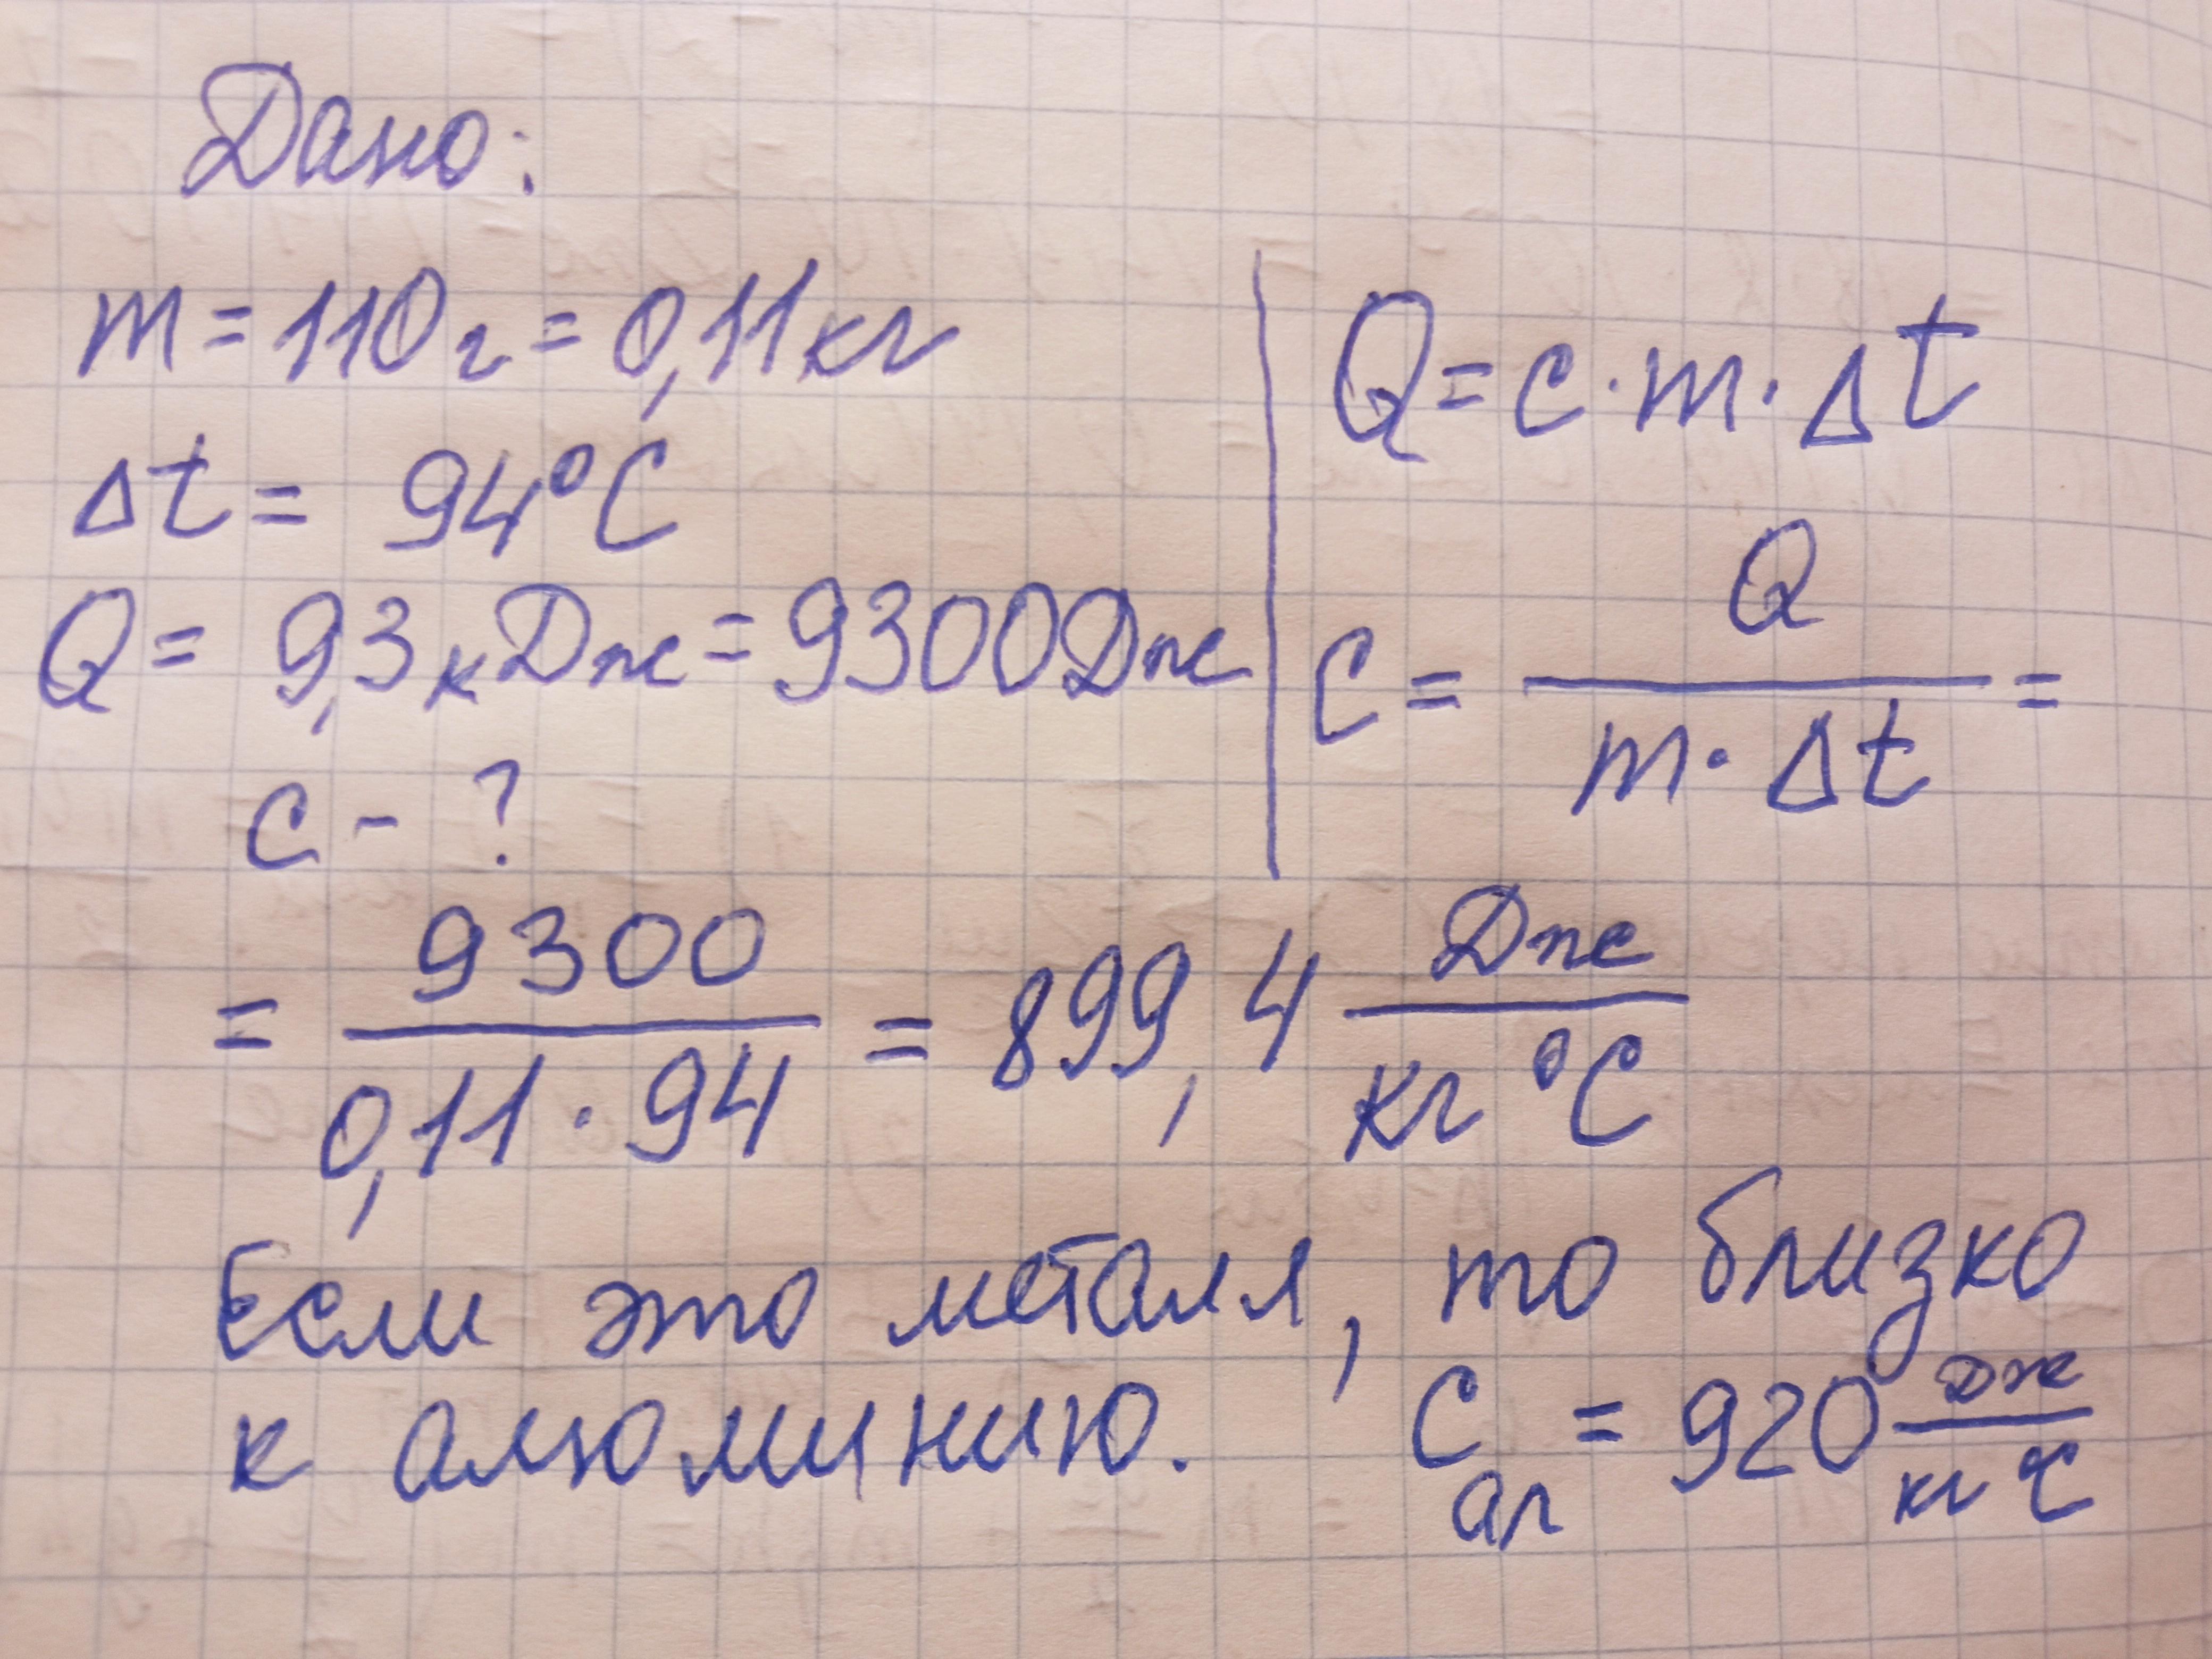 Дано:
m = 110 г = 0,11 кг
Δt = 94°C
Q = 9,3 кДж = 9300 Дж
c - ?
Q = c · m · Δt
c = Q / (m · Δt) =
= 9300 / (0,11 · 94) = 899,4 Дж / (кг °C)
Если это металл, то близко
к алюминию. C ал = 920 Дж / (кг °C)